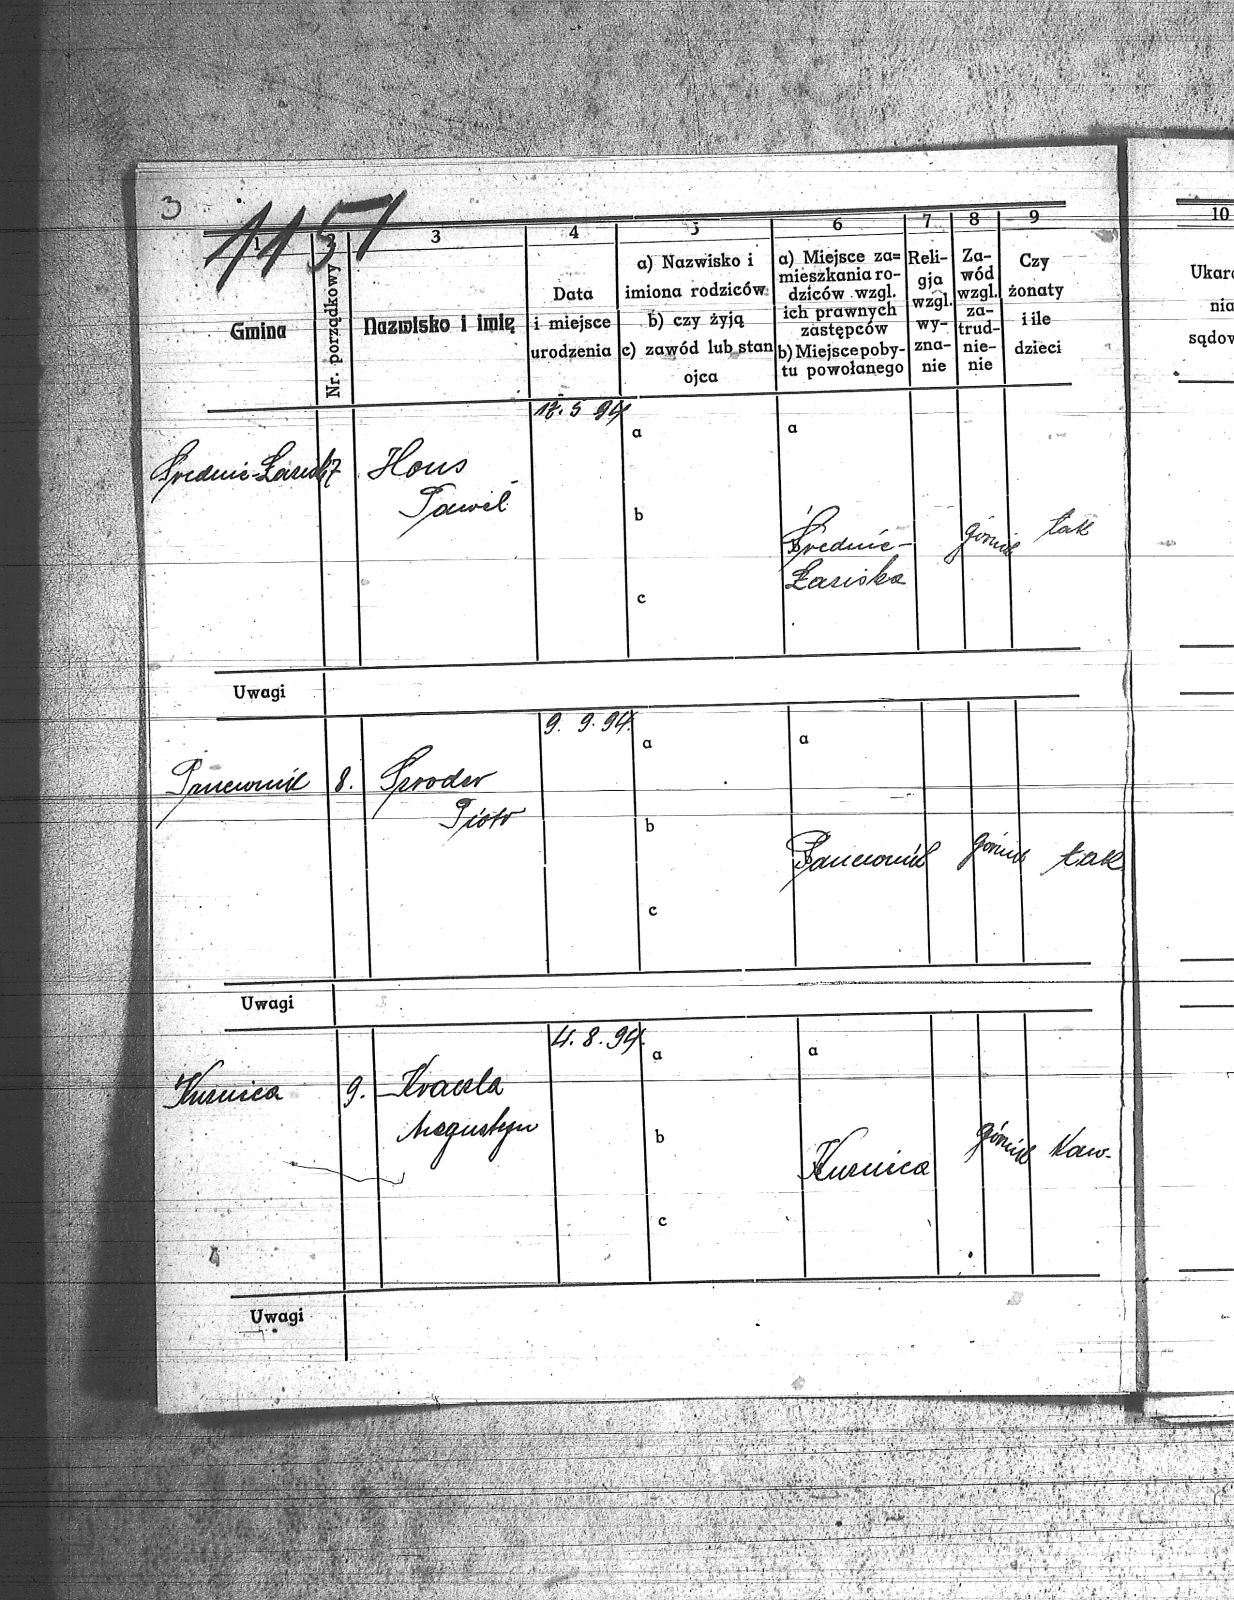 3
1157
1 2 3 4 5 6 7 8 9 10
Gmina
Nr. porządkowy
Nazwisko i imię
Data
i miejsce
urodzenia
a) Nazwisko i
imiona rodziców
b) czy żyją
c) zawód lub stan
ojca
a) Miejsce za=
mieszkania ro-
dziców wzgl.
ich prawnych
zastępców
b) Miejsce poby-
tu powołanego
Reli-
gja
wzgl.
wy-
zna-
nie
Za-
wód
wzgl.
za-
trud-
nie-
nie
Czy
żonaty
i ile
dzieci
Ukara
nia
sądow
5 94
Średnie-Łaziska 7 Hous
Paweł
a
b
c
a
b
Średnie-
Łaziska
górnik
tak
Uwagi
9. 9. 94.
Panewnik 8.
Piotr
a
b
c
a
b
Panewnik
górnik
tak
Uwagi
8. 94.
Kuznica 9.
Augustyn
a
b
c
a
Kuznica
górnik
kaw.
Uwagi